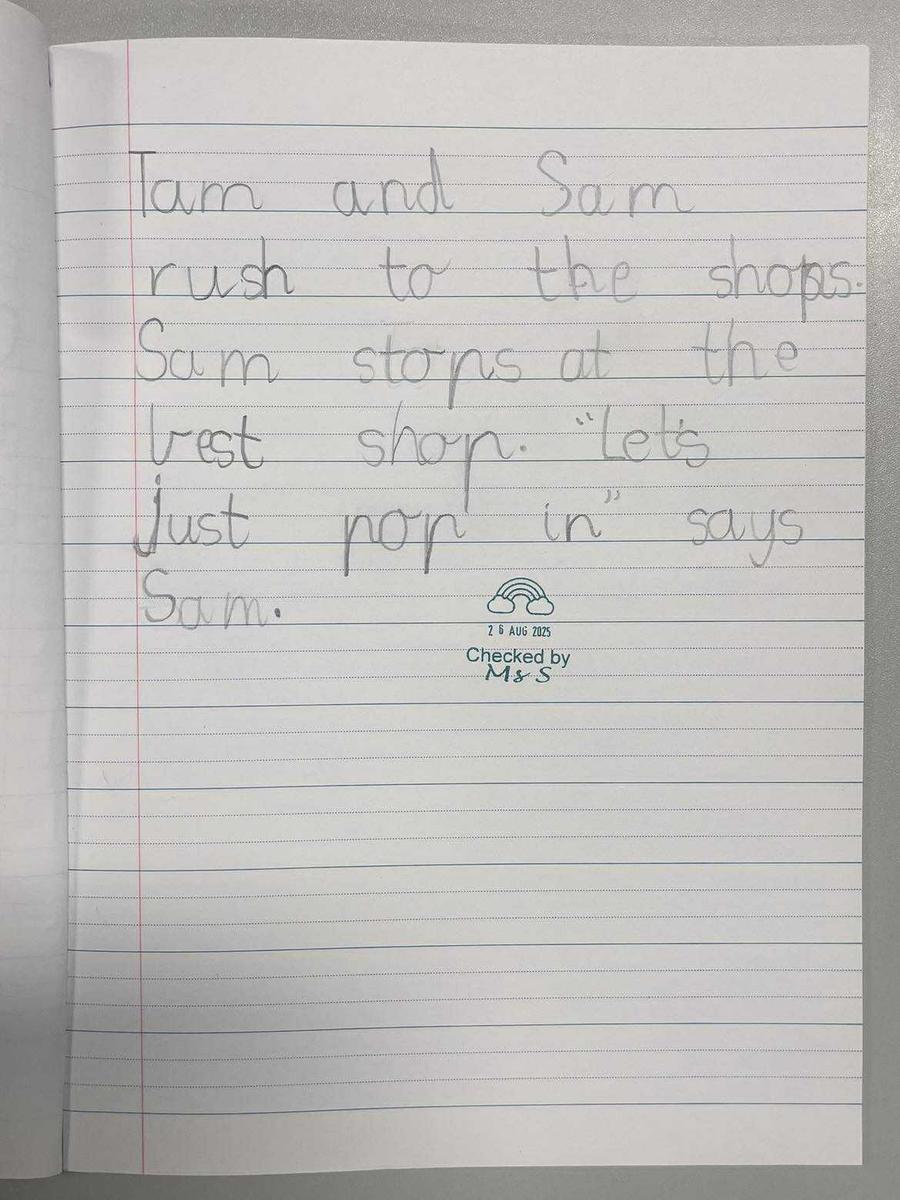 Tam and Sam
rush to the shops.
Sam stops at the
best shop. “Let's
just pop in” says
Sam.
26 AUG 2025
Checked by
Ms S